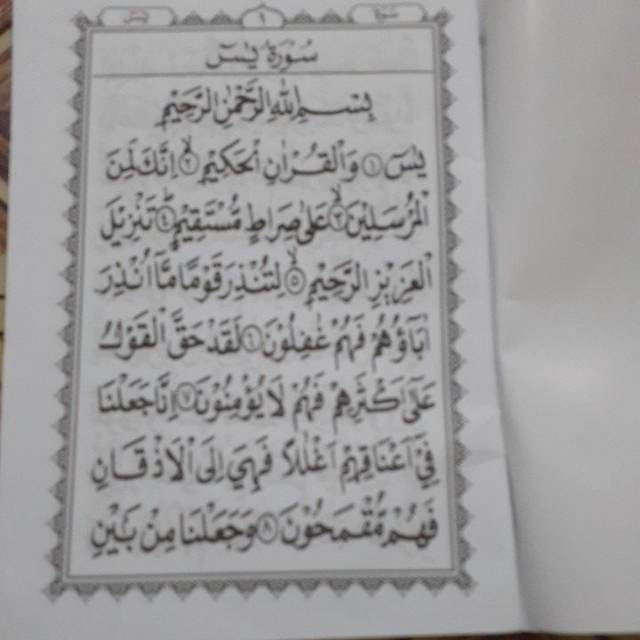 يٰسٓ ١
سُوْرَةُ يٰسٓ
بِسْمِ اللهِ الرَّحْمٰنِ الرَّحِيْمِ
يٰسٓ ١ وَالْقُرْاٰنِ الْحَكِيْمِ ٢ اِنَّكَ لَمِنَ
الْمُرْسَلِيْنَ ٣ عَلٰى صِرَاطٍ مُّسْتَقِيْمٍ ٤ تَنْزِيْلَ
الْعَزِيْزِ الرَّحِيْمِ ٥ لِتُنْذِرَ قَوْمًا مَّا اُنْذِرَ
اٰبَاؤُهُمْ فَهُمْ غٰفِلُوْنَ ٦ لَقَدْ حَقَّ الْقَوْلُ
عَلٰى اَكْثَرِهِمْ فَهُمْ لَا يُؤْمِنُوْنَ ٧ اِنَّا جَعَلْنَا
فِيْ اَعْنَاقِهِمْ اَغْلٰلًا فَهِيَ اِلَى الْاَذْقَانِ
فَهُمْ مُّقْمَحُوْنَ ٨ وَجَعَلْنَا مِنْ بَيْنِ